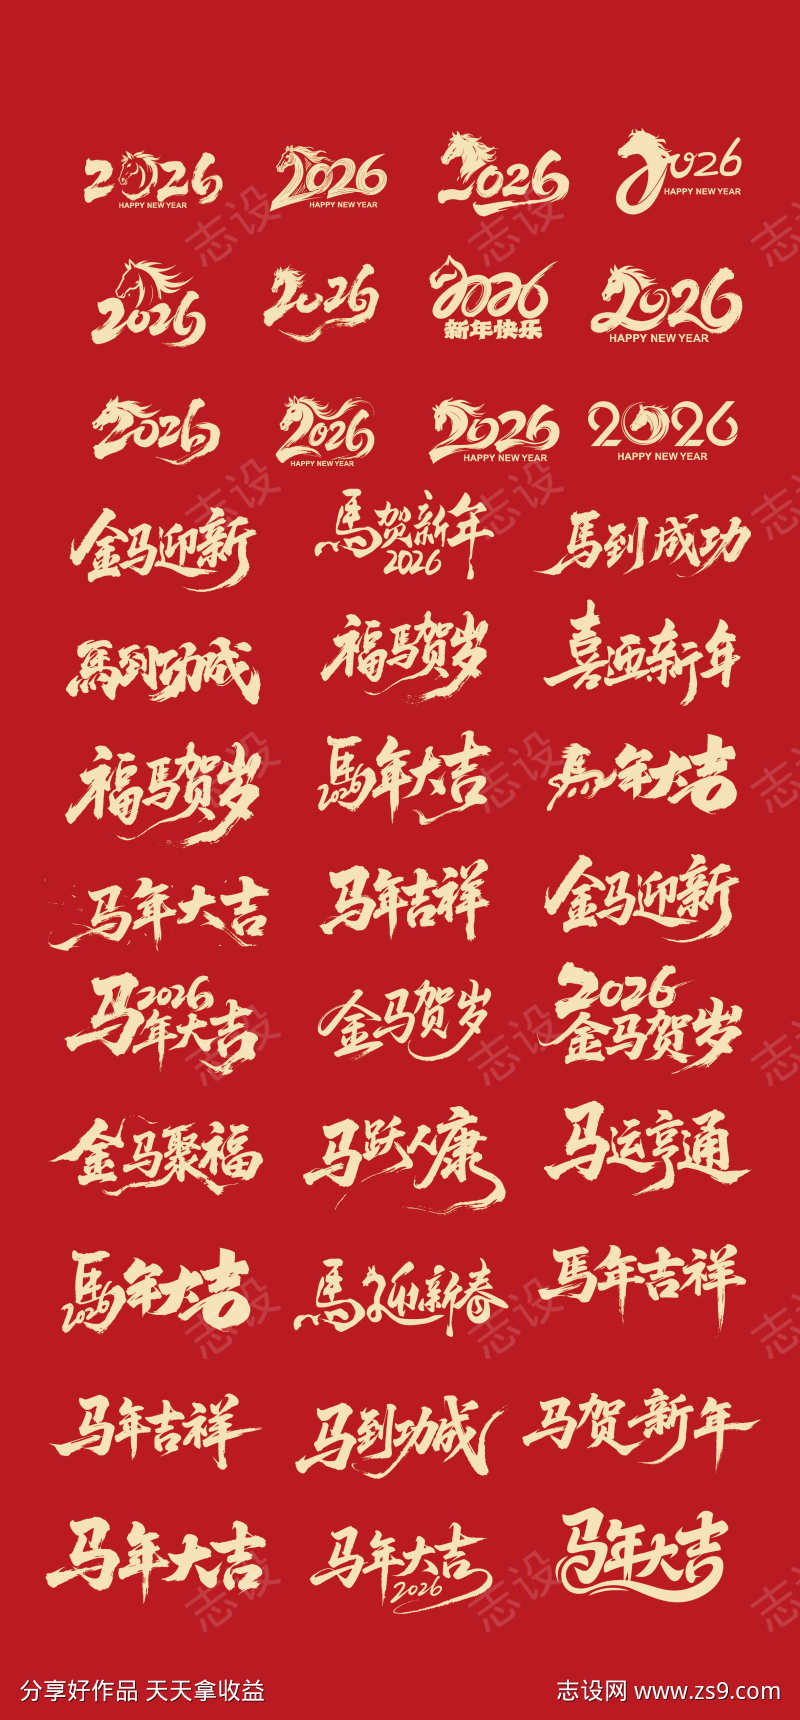 2026
HAPPY NEW YEAR
2026
HAPPY NEW YEAR
2026
2026
HAPPY NEW YEAR
2026
2026
2026
新年快乐
2026
HAPPY NEW YEAR
2026
2026
HAPPY NEW YEAR
2026
HAPPY NEW YEAR
2026
HAPPY NEW YEAR
金马迎新
馬贺新年
2026
馬到成功
馬到功成
福马贺岁
喜迎新年
福马贺岁
馬年大吉
2026
馬年大吉
马年大吉
马年吉祥
金马迎新
马年大吉
2026
金马贺岁
2026
金马贺岁
金马聚福
马跃人康
马运亨通
馬年大吉
2026
馬迎新春
馬年吉祥
马年吉祥
马到功成
马贺新年
马年大吉
马年大吉
2026
马年大吉
志设
分享好作品 天天拿收益
志设网 www.zs9.com